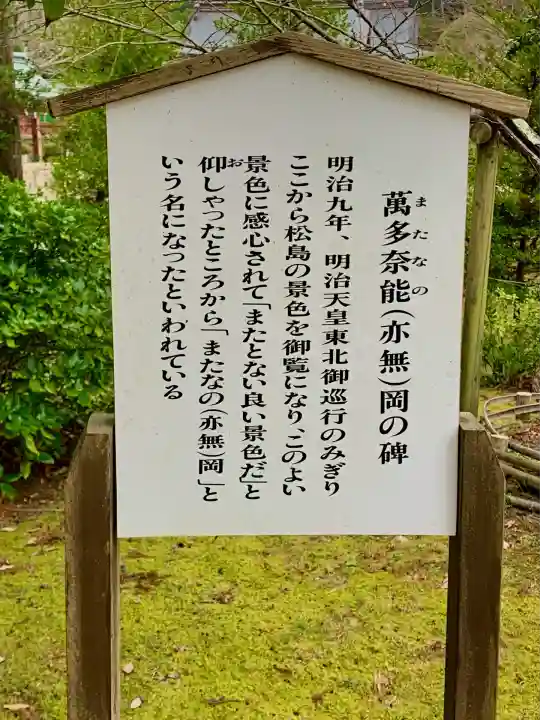 萬多奈能(亦無)岡の碑
またなの
明治九年、明治天皇東北御巡行のみぎり
ここから松島の景色を御覧になり、このよい
景色に感心されて「またとない良い景色だ」と
仰しゃったところから、「またなの(亦無)岡」と
お
いう名になったといわれている